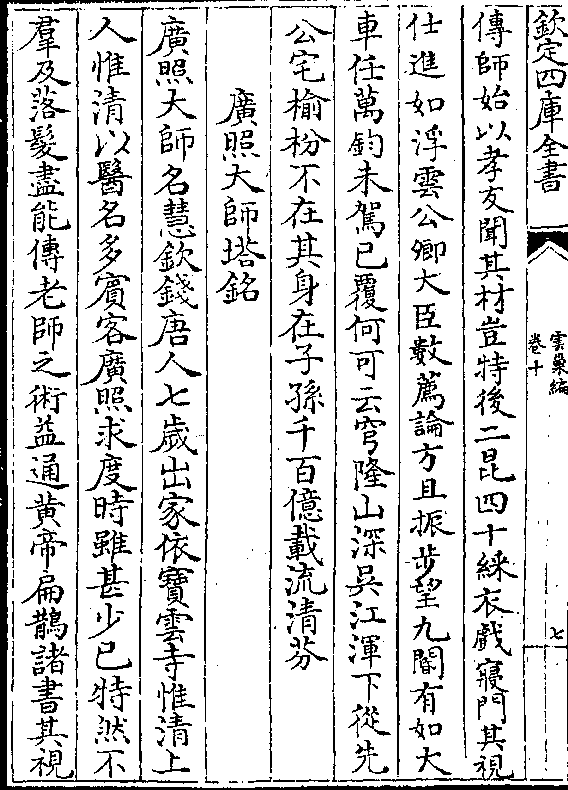 欽定四庫全書
雲巢編
卷十
七
傳師始以孝友聞其材豈特後二昆四十綵衣戲寢門其視
仕進如浮雲公卿大臣數薦論方且振步望九閽有如大
車任萬鈞未駕已覆何可云穹隆山深吳江渾下從先
公宅榆枌不在其身在子孫千百億載流清芬
廣照大師塔銘
廣照大師名慧欽錢唐人七歲出家依寶雲寺惟清上
人惟清以醫名多賓客廣照求度時雖甚少已特然不
羣及落髮盡能傳老師之術益通黄帝扁鵲諸書其視